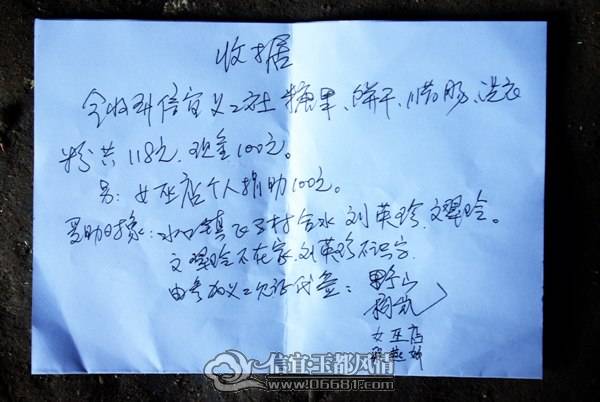 收据
今收到信宜义工社糖果、饼干、腊肠、洗衣
粉共118元.现金100元。
另:女巫店个人捐助100元。
受助对象:水口镇飞子村合水 刘英珍,文翠玲。
文翠玲不在家,刘英珍不识字.
由参加义工见证代签:野山
女巫店
信宜玉都风情
www.06681.com